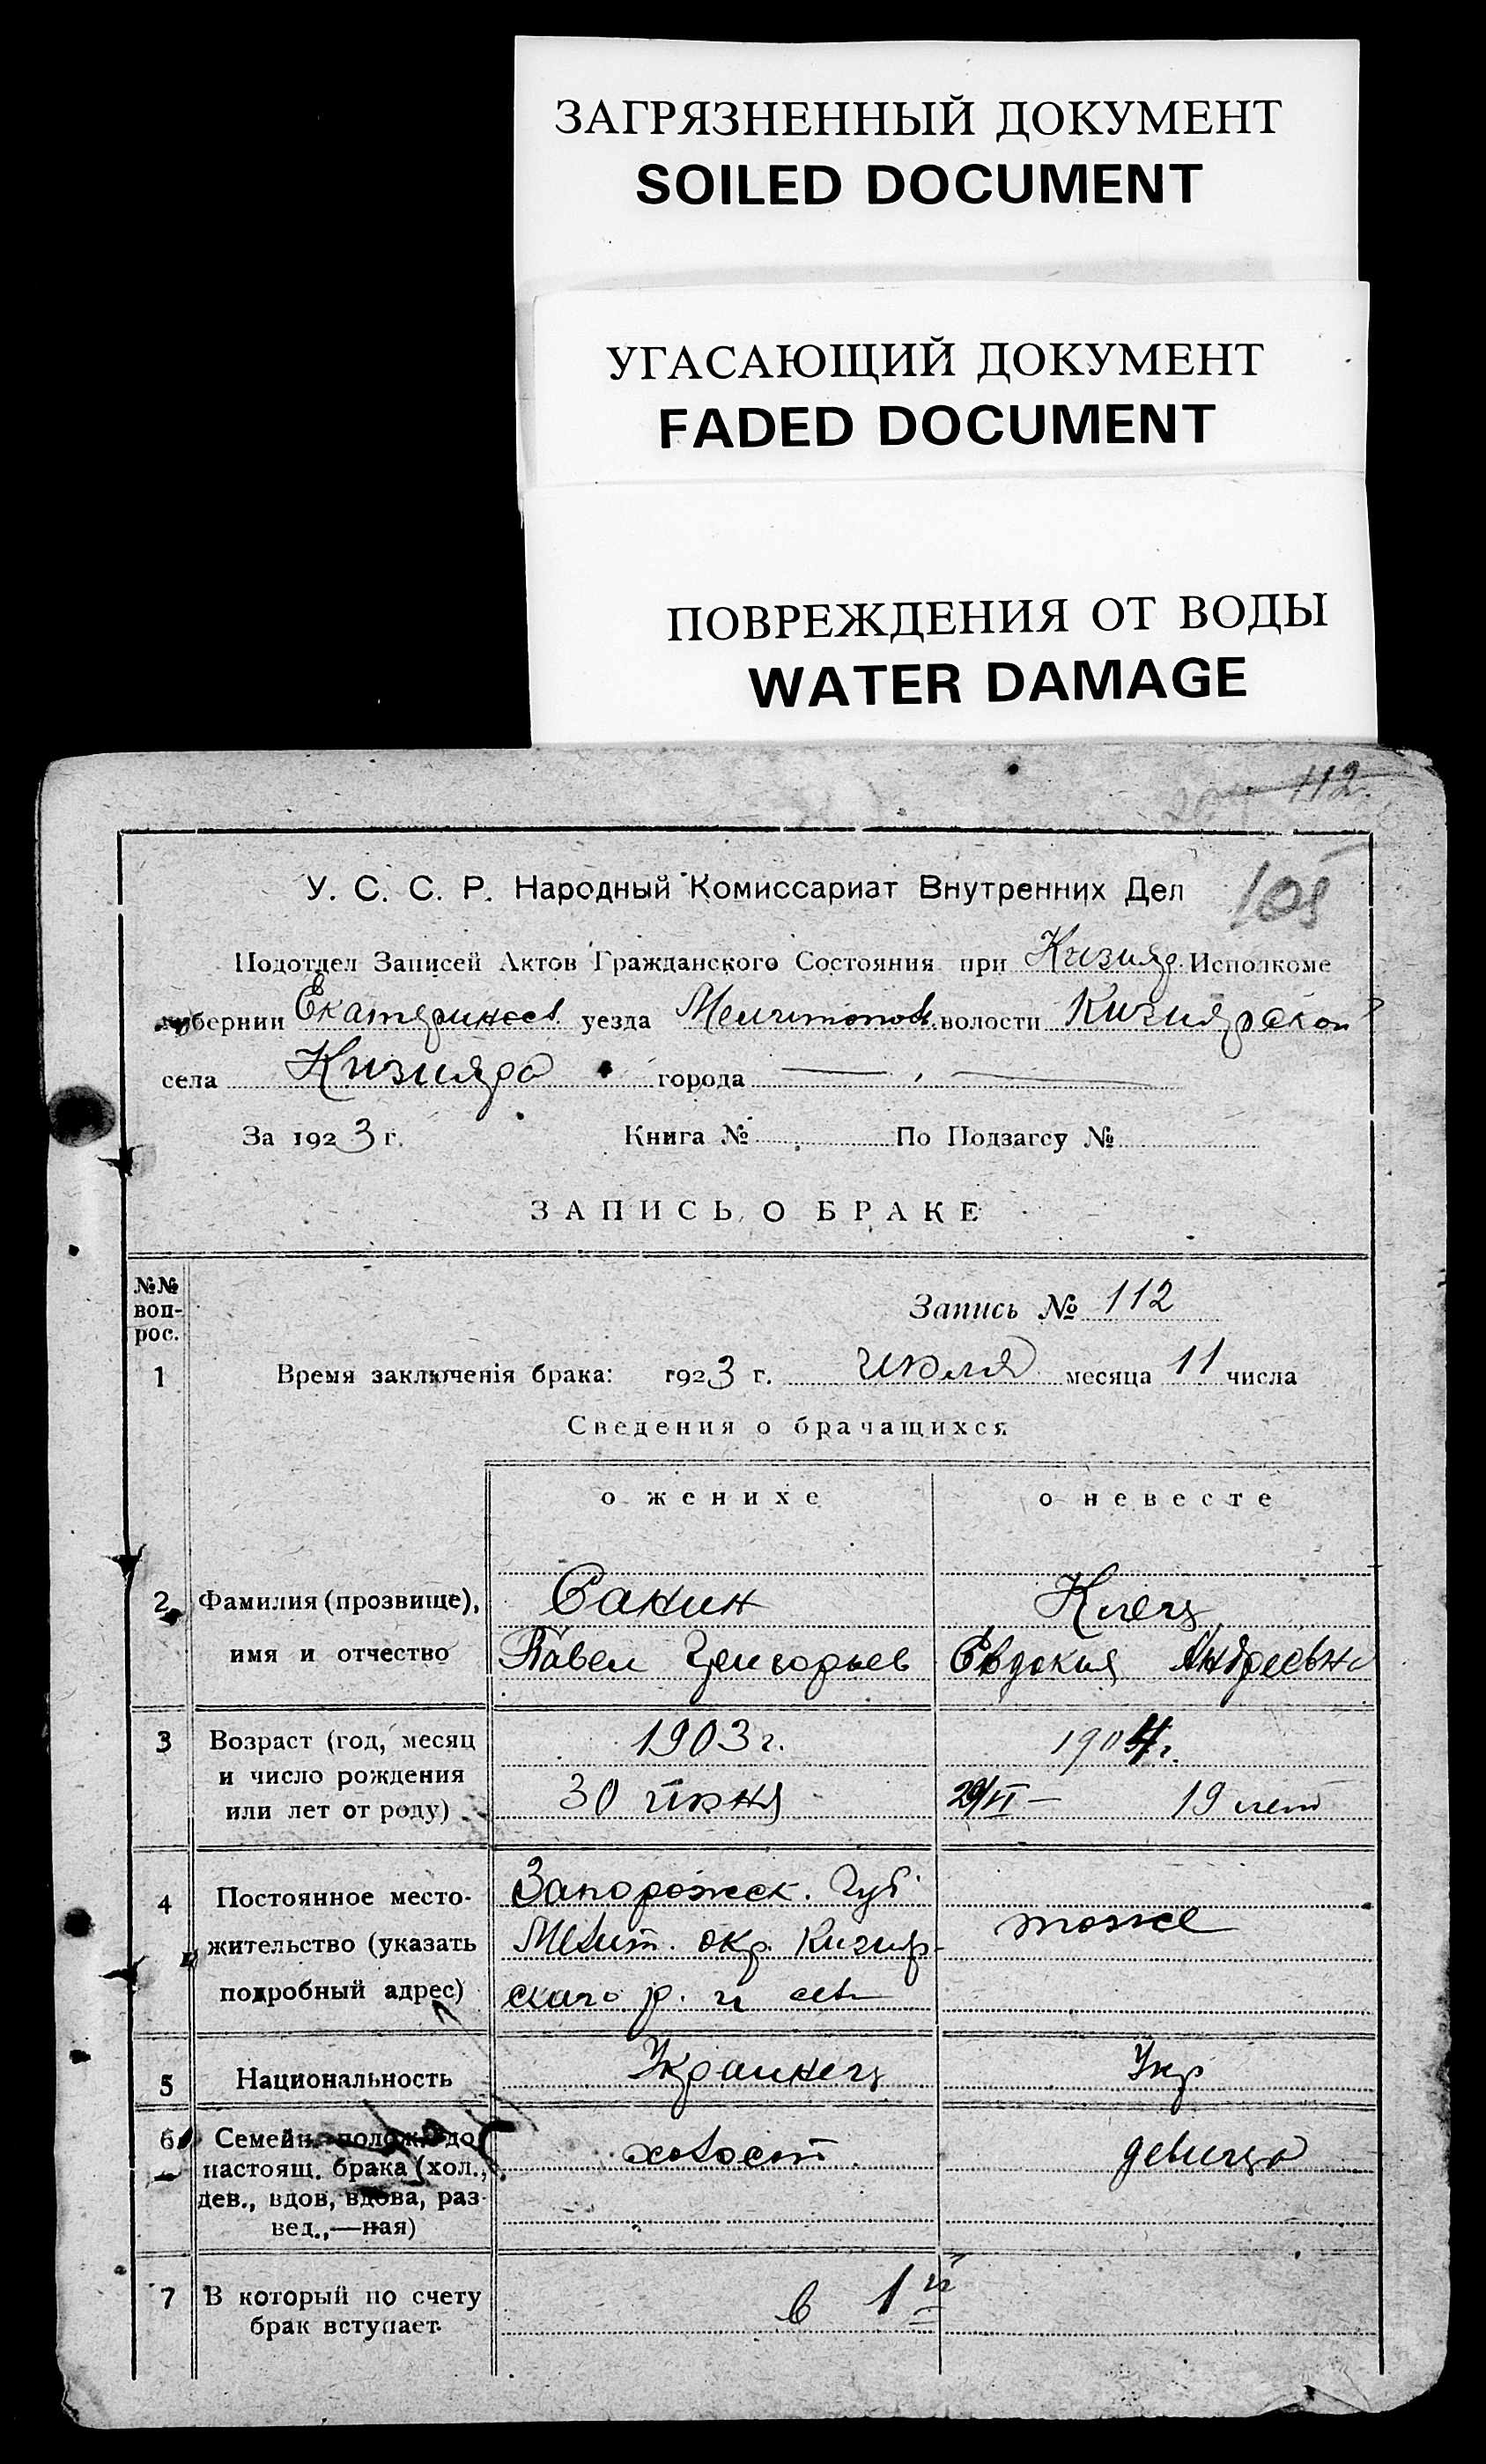 ЗАГРЯЗНЕННЫЙ ДОКУМЕНТ
SOILED DOCUMENT
УГАСАЮЩИЙ ДОКУМЕНТ
FADED DOCUMENT
ПОВРЕЖДЕНИЯ ОТ ВОДЫ
WATER DAMAGE
112
У. С. С. Р. Народный Комиссариат Внутренних Дел
Подотдел Записей Актов Гражданского Состояния при Кизияр. Исполкоме
губернии Екатериносл. уезда Мелитопол. волости Кизиярской
села Кизияра города — —
За 1923 г. Книга № По Подзагсу №
ЗАПИСЬ О БРАКЕ
№№ воп-рос.
Запись № 112
1 Время заключенія брака: 1923 г. июля месяца 11 числа
Сведения о брачащихся
о женихе о невесте
2 Фамилия (прозвище), Санин Клец
имя и отчество Павел Григорьев Евдокия Андреевна
3 Возраст (год, месяц 1903 г. 1904 г.
и число рождения
или лет от роду) 30 июня 29/VI — 19 лет
4 Постоянное место- Запорожск. Губ.
жительство (указать Мелит. окр. Кизияр- тоже
подробный адрес) ского р. и
5 Национальность Украинец Укр
6 Семейн. полож. до холост девица
настоящ. брака (хол.,
дев., вдов, вдова, раз-
вед.,—ная)
7 В который по счету в 1й
брак вступает.